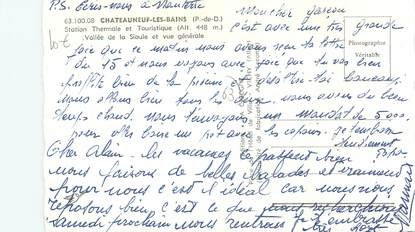 P.S. Écris-nous à
63.100.08 CHATEAUNEUF-LES-BAINS (P.-de-D.)
Station Thermale et Touristique (Alt. 448 m.)
Vallée de la Sioule et vue générale
Photographie
Véritable
Mon cher garçon
c'est avec une très grande
joie que ce matin nous avons reçu ta lettre
du 15 et nous voyons avec joie que tu vas bien
profite bien de la piscine
Nous allons bien tous les deux, nous avons du beau
temps chaud. Nous t'envoyons un mandat de 5000
pour aller boire un pot avec les copains. je t'embrasse
Cher Alain. les vacances se passent bien
nous faisons de belles balades et vraiment
pour nous c'est l'idéal car nous nous
reposons bien, c'est ce que
samedi prochain nous rentrons je t'embrasse